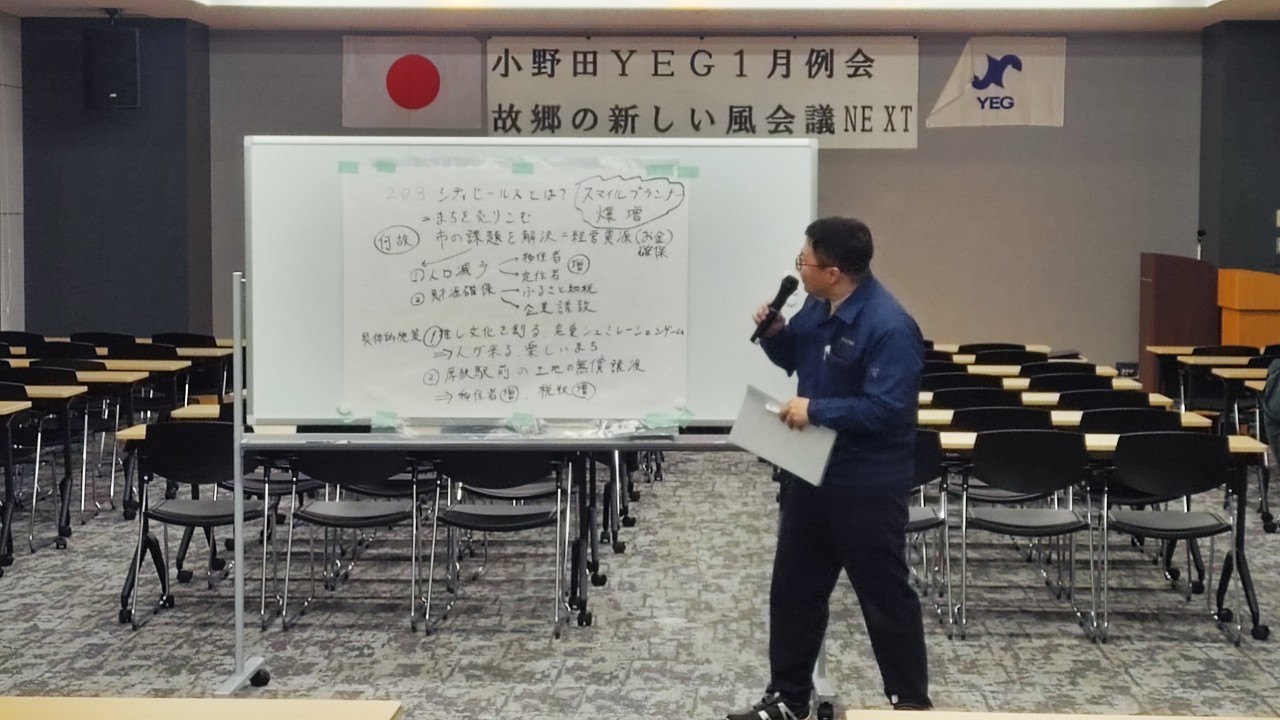 小野田YEG1月例会
故郷の新しい風会議NEXT
YEG
203 シティセールスとは?
スマイルプランナー
爆増
=まちを売りこむ
何故 市の課題を解決=経営資源(お金)
確保
①人口減う 移住者
定住者 増
②財源確保 ふるさと納税
企業誘致
具体的施策 ①推し文化を創る、恋愛シュミレーションゲーム
⇒人が来る、楽しいまち
②厚狭駅前の土地の無償譲渡
⇒移住者増、税収増